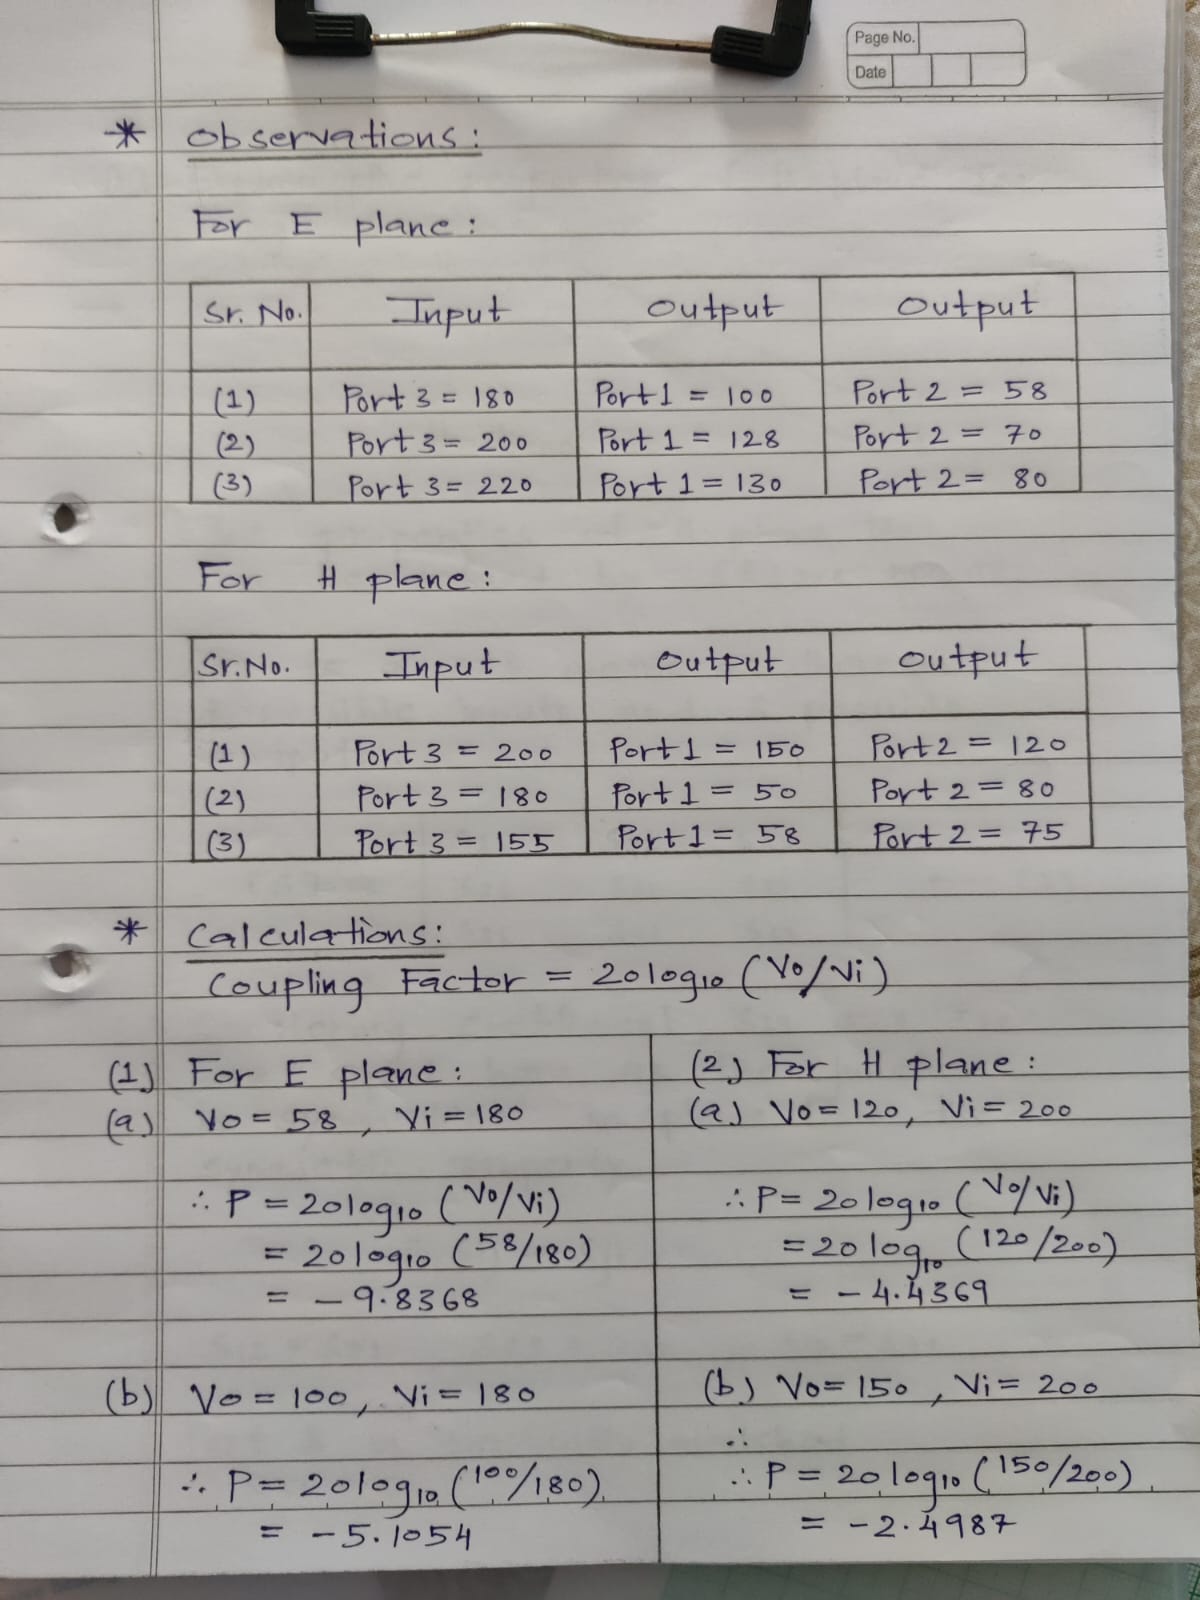 Page No.
Date
* Observations:
For E plane:
Sr. No. Input Output Output
(1) Port 3 = 180 Port 1 = 100 Port 2 = 58
(2) Port 3 = 200 Port 1 = 128 Port 2 = 70
(3) Port 3 = 220 Port 1 = 130 Port 2 = 80
For H plane:
Sr. No. Input Output Output
(1) Port 3 = 200 Port 1 = 150 Port 2 = 120
(2) Port 3 = 180 Port 1 = 50 Port 2 = 80
(3) Port 3 = 155 Port 1 = 58 Port 2 = 75
* Calculations:
Coupling Factor = 20log10 (Vo/Vi)
(1) For E plane:
(a) Vo = 58, Vi = 180
∴ P = 20log10 (Vo/Vi)
= 20log10 (58/180)
= -9.8368
(b) Vo = 100, Vi = 180
∴ P = 20log10 (100/180)
= -5.1054
(2) For H plane:
(a) Vo = 120, Vi = 200
∴ P = 20log10 (Vo/Vi)
= 20log10 (120/200)
= -4.4369
(b) Vo = 150, Vi = 200
∴
∴ P = 20log10 (150/200)
= -2.4987